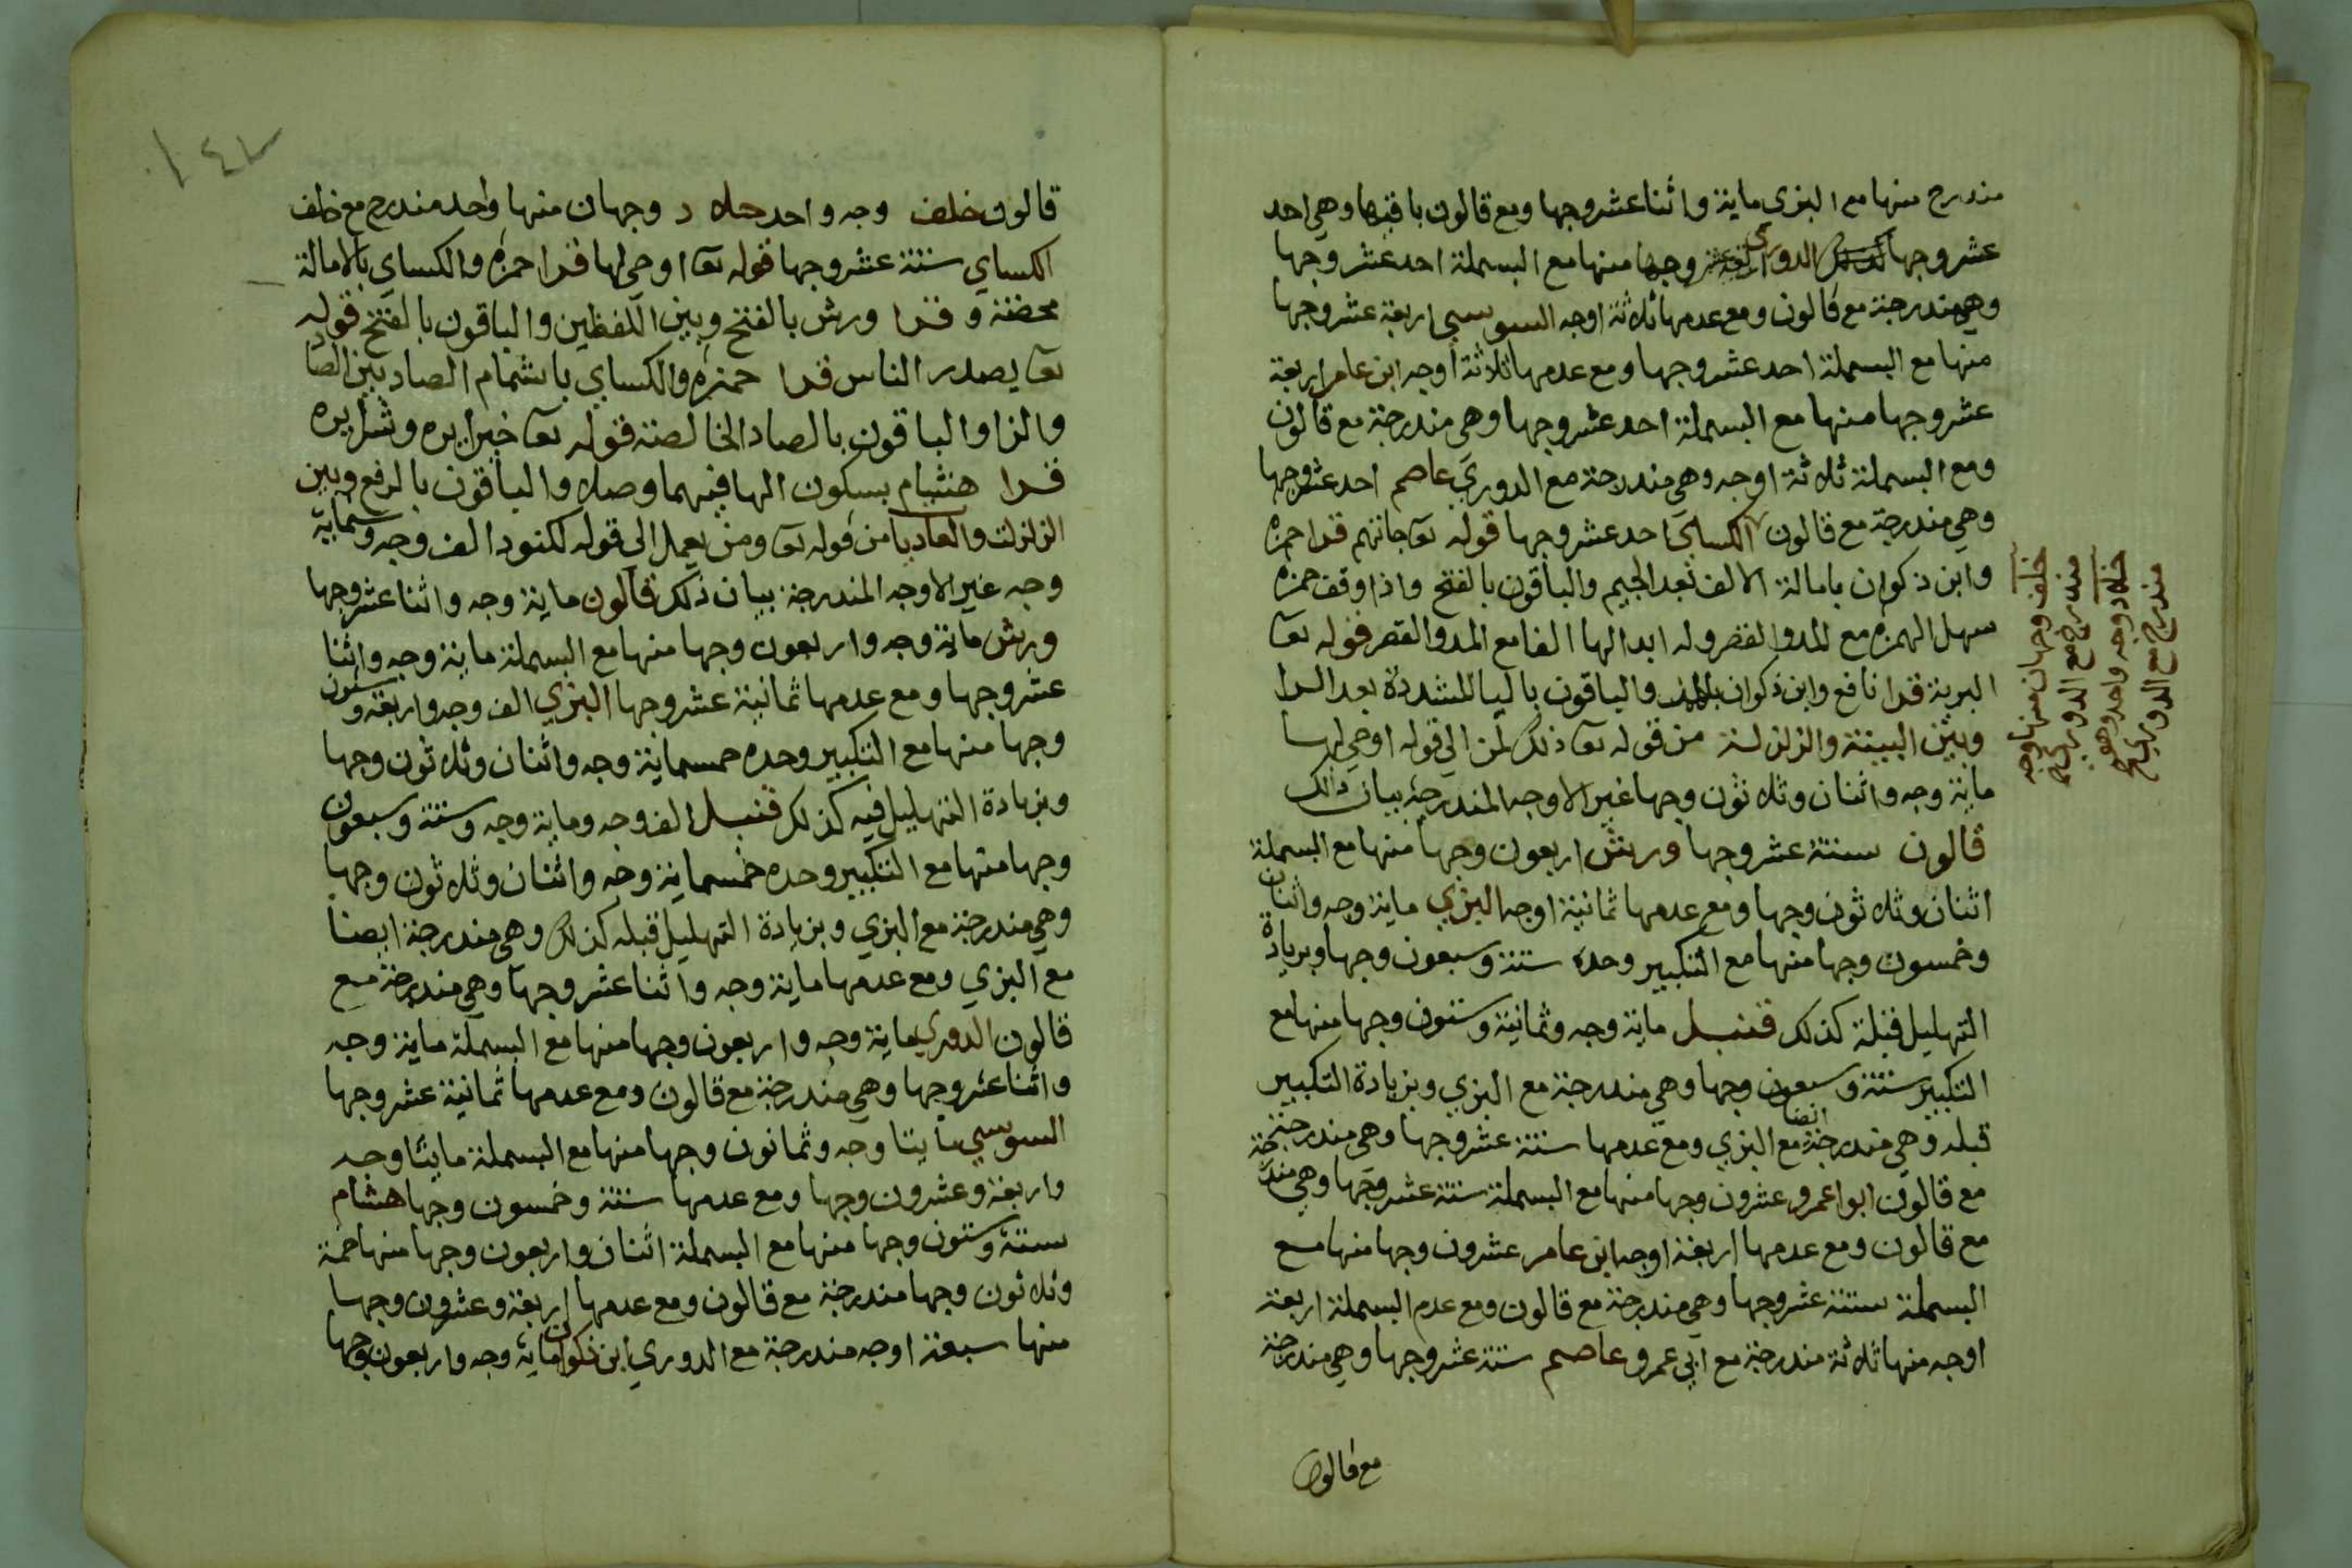 مندرج منها مع البزي ماية واثنا عشر وجها ومع قالون باقيها وهي احد
عشر وجها الدوري وجها منها مع البسملة احد عشر وجها
وهي مندرجة مع قالون ومع عدمها ثلاثة اوجه السوسي اربعة عشر وجها
منها مع البسملة احد عشر وجها ومع عدمها ثلاثة اوجه ابن عامر اربعة
عشر وجها منها مع البسملة احد عشر وجها وهي مندرجة مع قالون
ومع البسملة ثلاثة اوجه وهي مندرجة مع الدوري عاصم احد عشر وجها
وهي مندرجة مع قالون الكسائي احد عشر وجها قوله تعا جاتهم قرا حمزة
وابن ذكوان بامالة الالف بعد الجيم والباقون بالفتح واذا وقف حمزة
سهل الهمزة مع المد والقصر وله ابدالها الفا مع المد والقصر قوله تعا
البرية قرا نافع وابن ذكوان والباقون باليا المشددة بعد الرا
وبين البينة والزلزلة من قوله تعا ذلك لمن الي قوله اوحي لها
ماية وجه واثنان وثلاثون وجها غير الاوجه المندرجة بيان ذلك
قالون ستة عشر وجها ورش اربعون وجها منها مع البسملة
اثنان وثلاثون وجها ومع عدمها ثمانية اوجه البزي ماية وجه واثنان
وخمسون وجها منها مع التكبير وحده ستة وسبعون وجها وبزيادة
التهليل قبله كذلك قنبل ماية وجه وثمانية وستون وجها منها مع
التكبير ستة وسبعون وجها وهي مندرجة مع البزي وبزيادة التكبير
قبله وهي مندرجة ايضا مع البزي ومع عدمها ستة عشر وجها وهي مندرجة
مع قالون ابوا عمرو عشرون وجها منها مع البسملة ستة عشر وجها وهي مندرجة
مع قالون ومع عدمها اربعة اوجه ابن عامر عشرون وجها منها مع
البسملة ستة عشر وجها وهي مندرجة مع قالون ومع عدم البسملة اربعة
اوجه منها ثلاثة مندرجة مع ابي عمرو عاصم ستة عشر وجها وهي مندرجة
مع قالون
خلف وجهان منها وجه
مندرج مع الدوري
خلاد وجه واحد وهو
مندرج مع الدوري
١٤٢
قالون خلف وجه واحد خلاد وجهان منها واحد مندرج مع خلف
الكساي ستة عشر وجها قوله تعا اوحي لها قرا حمزة والكساي بالامالة
محضة وقرا ورش بالفتح وبين اللفظين والباقون بالفتح قوله
تعا يصدر الناس قرا حمزة والكساي باشمام الصاد بين الصاد
والزا والباقون بالصاد الخالصة قوله تعا خيرا يره وشرا يره
قرا هشام بسكون الها فيهما وصلا والباقون بالرفع وبين
الزلزلت والعاديا من قوله تعا ومن يعمل الى قوله لكنود الف وجه وستماية
وجه غير الاوجه المندرجة بيان ذلك قالون ماية وجه واثنا عشر وجها
ورش ماية وجه واربعون وجها منها مع البسملة ماية وجه واثنا
عشر وجها ومع عدمها ثمانية عشر وجها البزي الف وجه واربعة وستون
وجها منها مع التكبير وحده خمسماية وجه واثنان وثلاثون وجها
وبزيادة التهليل فيه كذلك قنبل الف وجه وماية وجه وستة وسبعون
وجها منها مع التكبير وحده خمسماية وجه واثنان وثلاثون وجها
وهي مندرجة مع البزي وبزيادة التهليل قبله كذلك وهي مندرجة ايضا
مع البزي ومع عدمها ماية وجه واثنا عشر وجها وهي مندرجة مع
قالون الدوري ماية وجه واربعون وجها منها مع البسملة ماية وجه
واثنا عشر وجها وهي مندرجة مع قالون ومع عدمها ثمانية عشر وجها
السوسي مايتا وجه وثمانون وجها منها مع البسملة مايتا وجه
واربعة وعشرون وجها ومع عدمها ستة وخمسون وجها هشام
ستة وستون وجها منها مع البسملة اثنان واربعون وجها منها خمسة
وثلاثون وجها مندرجة مع قالون ومع عدمها اربعة وعشرون وجها
منها سبعة اوجه مندرجة مع الدوري ابن ذكوان ماية وجه واربعون وجها